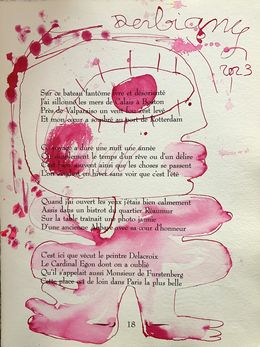 Derbigny
2023
Sur ce bateau fantôme ivre et désorienté
J'ai sillonné les mers de Calais à Boston
Près de Valparaiso un vent fou s'est levé
Et mon cœur a sombré au port de Rotterdam
Ce voyage a duré une nuit une année
Ou simplement le temps d'un rêve ou d'un délire
souvent ainsi que les choses se passent
en hiver sans voir que c'est l'été
Quand j'ai ouvert les yeux j'étais bien calmement
Assis dans un bistrot du quartier Réaumur
Sur la table traînait une photo jaunie
D'une ancienne Abbaye avec sa cour d'honneur
C'est ici que vécut le peintre Delacroix
Le Cardinal Egon dont on a oublié
Qu'il s'appelait aussi Monsieur de Furstenberg
Cette place est de loin dans Paris la plus belle
18